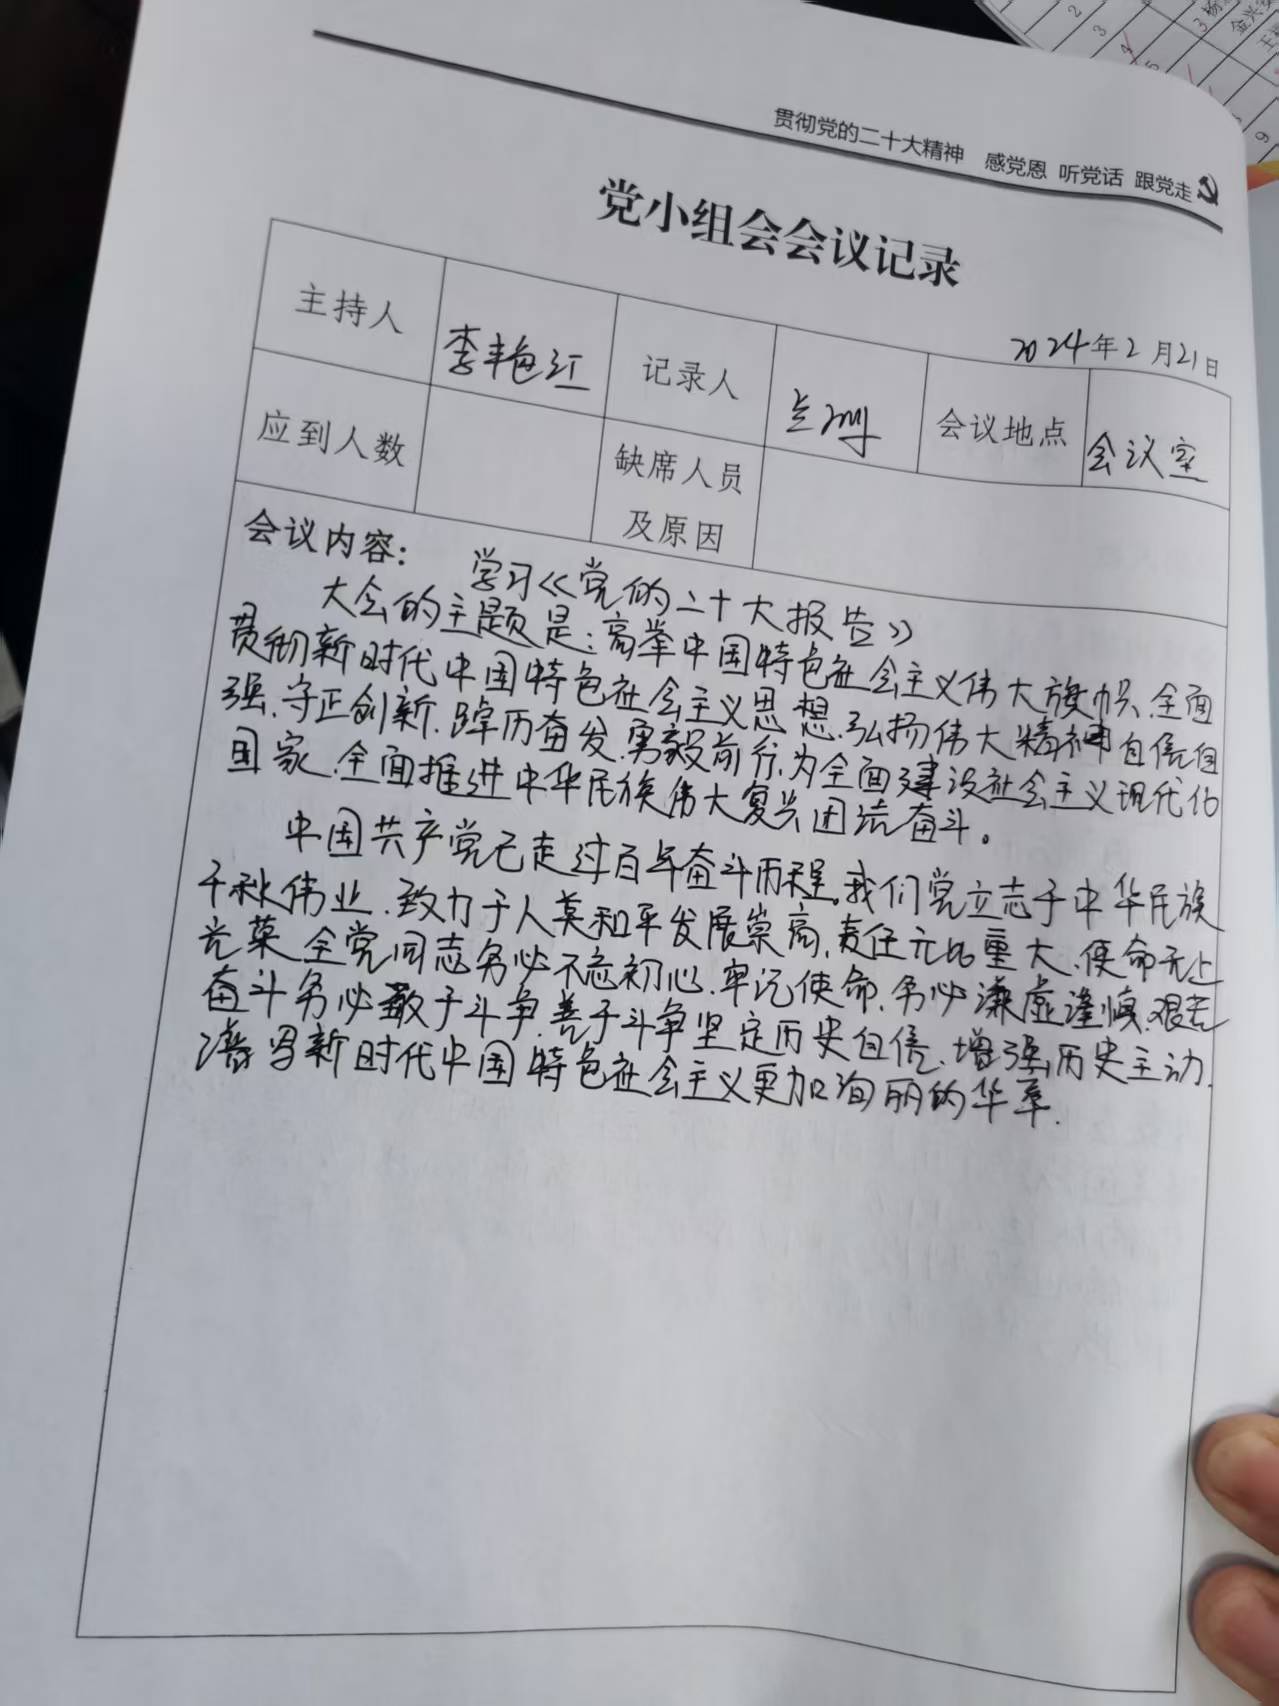 贯彻党的二十大精神 感党恩 听党话 跟党走
党小组会会议记录
2024年2月21日
主持人 李艳红 记录人 会议地点 会议室
应到人数 缺席人员及原因
会议内容: 学习《党的二十大报告》
大会的主题是:高举中国特色社会主义伟大旗帜、全面
贯彻新时代中国特色社会主义思想、弘扬伟大精神自信自
强、守正创新、踔厉奋发、勇毅前行、为全面建设社会主义现代化
国家、全面推进中华民族伟大复兴团结奋斗。
中国共产党已走过百年奋斗历程。我们党立志于中华民族
千秋伟业、致力于人类和平发展崇高、责任无比重大、使命无上
光荣 全党同志务必不忘初心、牢记使命、务必谦虚谨慎、艰苦
奋斗务必敢于斗争、善于斗争坚定历史自信、增强历史主动、
谱写新时代中国特色社会主义更加绚丽的华章.